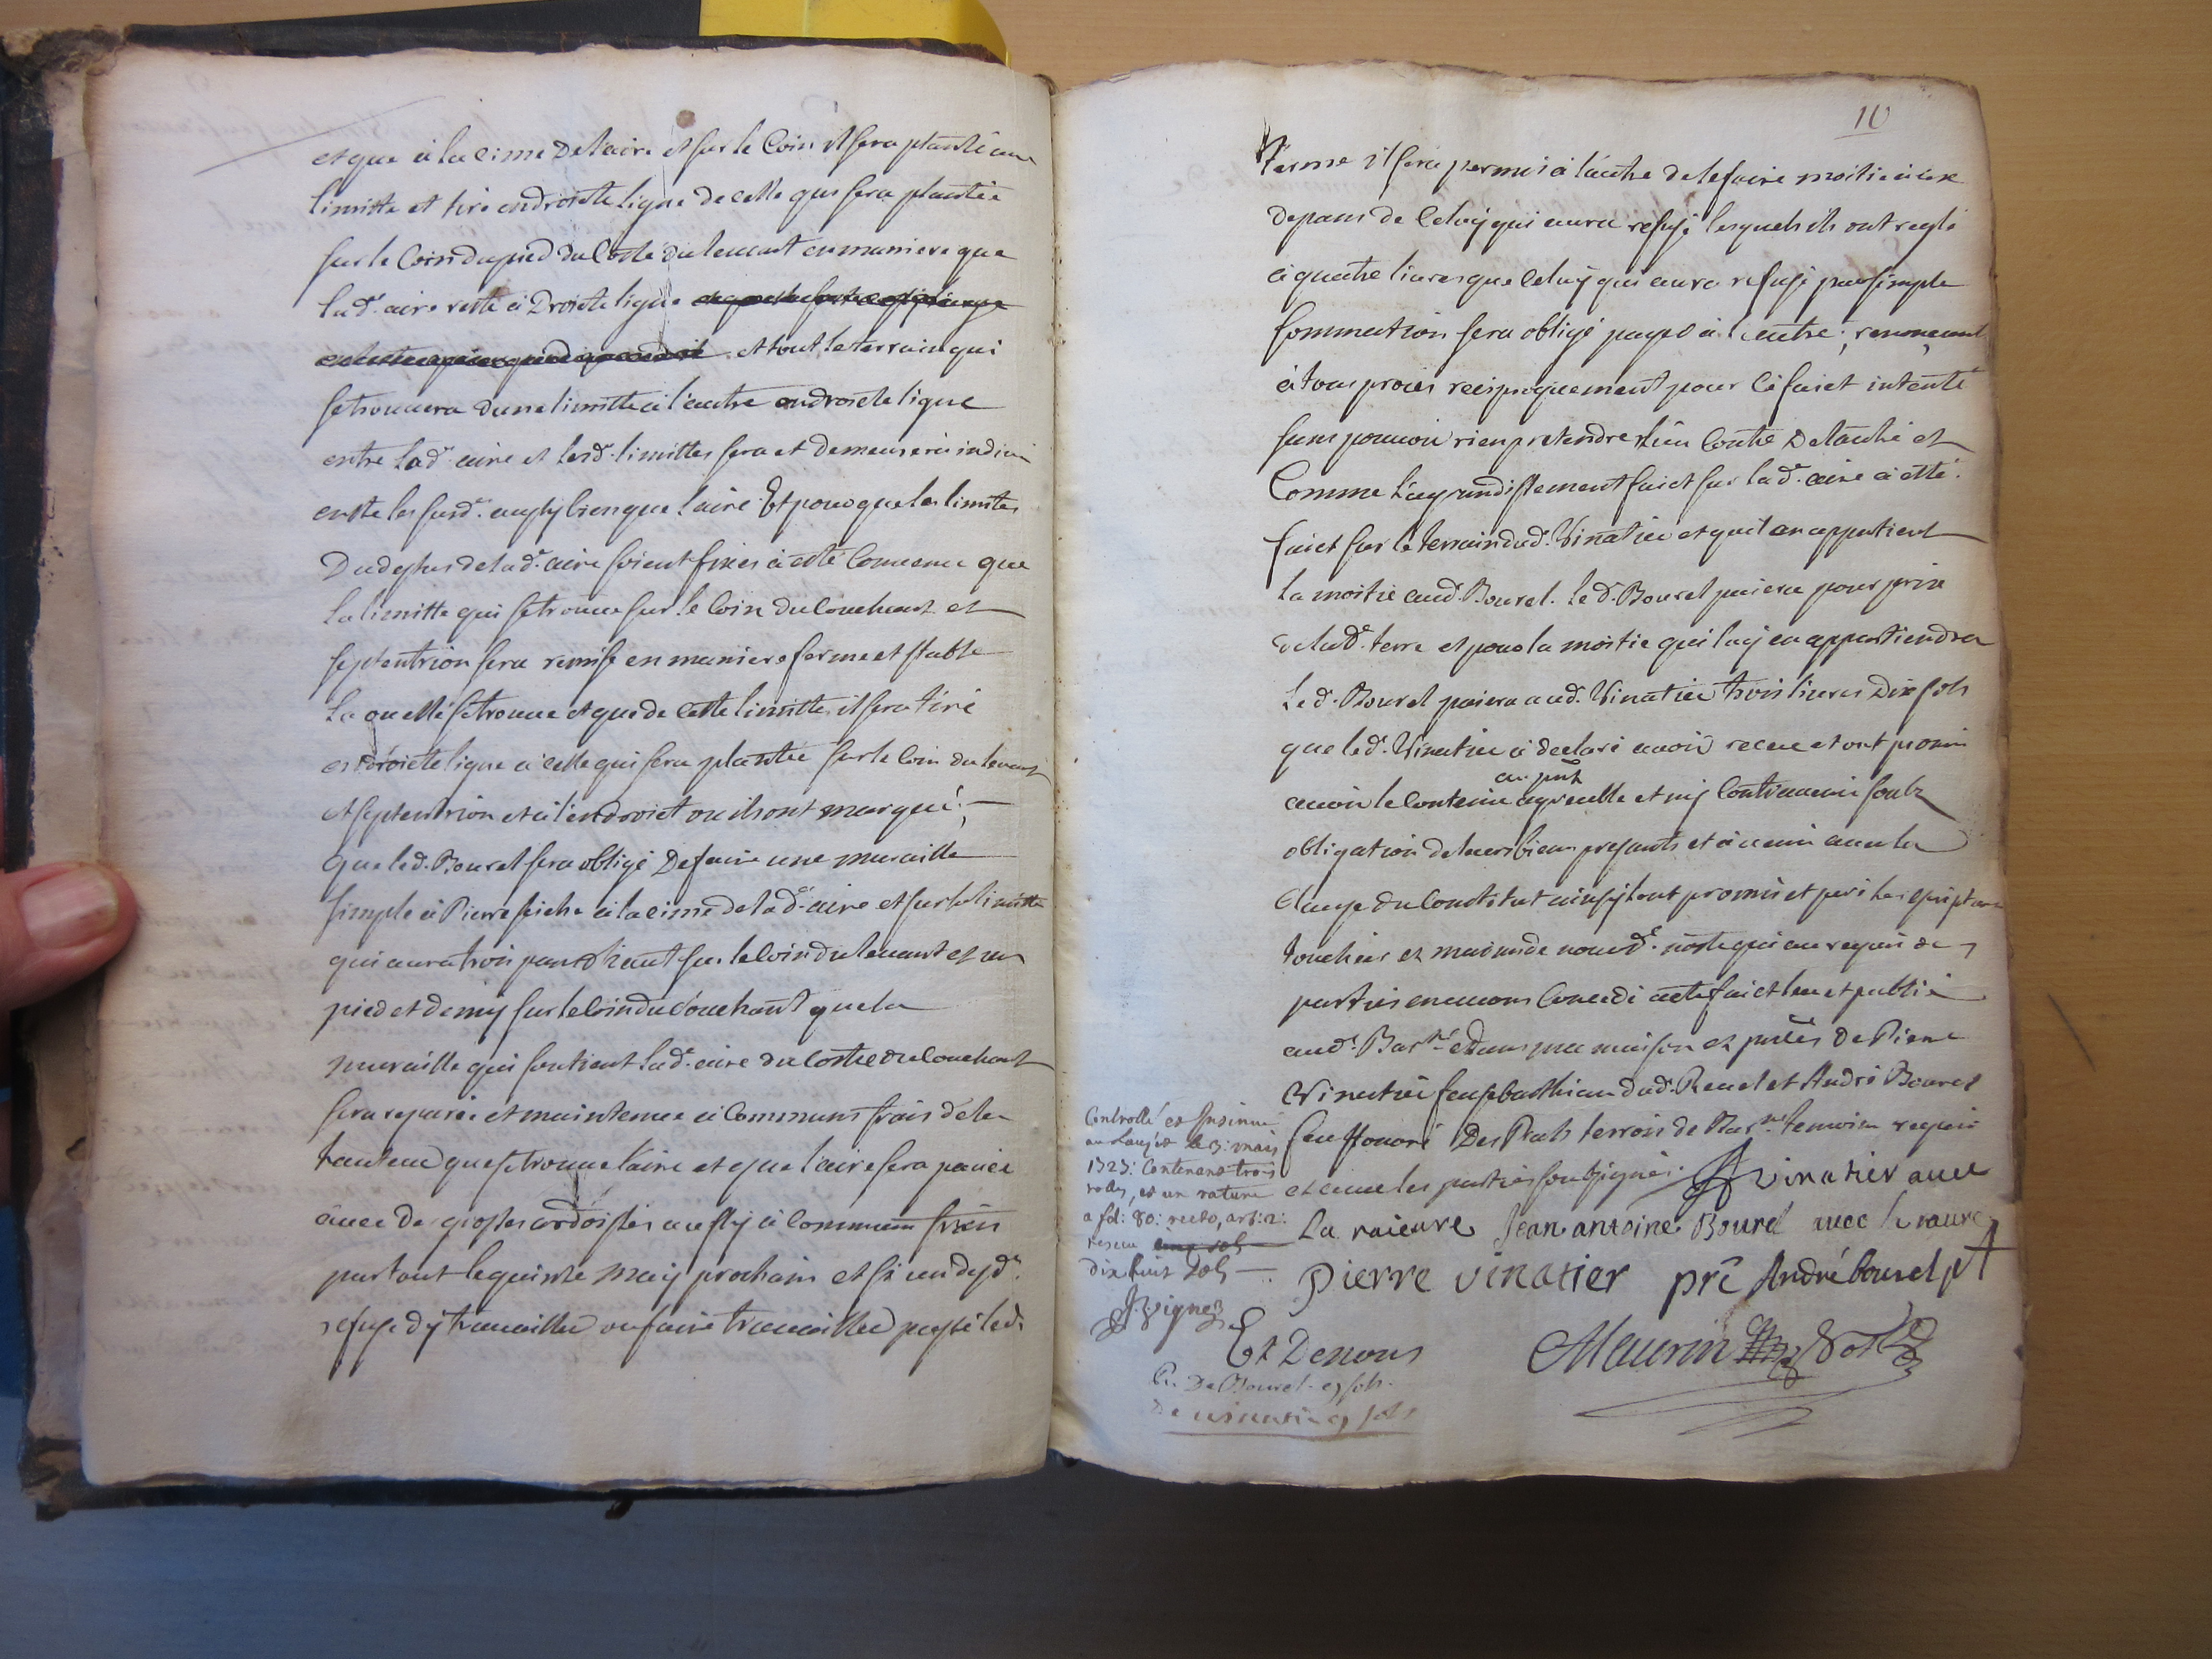 et que a la cime de laire et sur le Coin il sera planté une
limitte et tiré en droicte ligne de celle qui sera plantée
sur le Coin du pied du Costé du levant en maniere que
lad. aire reste a Droicte ligne
et tout le terrain qui
se trouvera dune limitte a l'autre en droicte ligne
entre lad. aire et lesd. limittes sera et demeurera indivis
entre les susd. aussy bien que l'aire Et pour que les limites
Du dessus de lad. aire soient fixes a esté Convenu que
la limitte qui se trouve sur le Coin du Couchant et
septentrion sera remise en maniere ferme et stable
La ou elle se trouve et que de cette limitte il sera tiré
en droicte ligne a celle qui sera plantée sur le Coin du levant
et septentrion et a l'endroict ou ils ont marqué;
que led. Bourel sera obligé De faire une muraille
simple a Pierre seiche a la cime de lad. aire et sur la limitte
qui aura trois pans d'haut sur le Coin du levant et un
pied et demy sur le Coin du Couchant que la
muraille qui soutient lad. aire du Costé du Couchant
sera reparée et maintenue a Communs frais de la
hauteur que se trouve l'aire et que l'aire sera pavée
avec de grosses ardoisses aussy a Commun frais
par tout le quinze may prochain et si un desd.
refuse d'y travailler ou faire travailler passé led.
10
Terme il sera permis a l'autre de le faire moitié aux
depans de Celuy qui aura refusé lesquels ils ont reglé
a quatre livres que Celuy qui aura refusé par simple
sommation sera obligé payer a l'autre; renonceant
a tous procès reciproquement pour Ce faict intenté
sans pouvoir rien pretendre l'un Contre De l'autre et
Comme L'agrandissement faict sur lad. aire a esté
faict sur le terrain dud. Vinatier et quil en appartient
la moitié aud. Bourel. Led. Bourel paiera pour prix
de lad. terre et pour la moitié qui luy en appartiendra
Led. Bourel paiera aud. Vinatier trois livres Dix sols
que led. Vinatier a declaré avoir receu et ont promis
au pnt
avoir le contenu agreable et ny Contrevenir soubz
obligation de leurs biens presants et a venir avec la
Clause du Constitut ainsy l'ont promis et juré les escriptures
touchées ez mains de nous d. nore qui au requis des
parties en avons Concedé acte faict leu et publié
aud. Bar.ne et dans ma maison ez pntes de Pierre
Vinatier feu sebasthian dud. Revel et André Bourel
feu honoré Des Prats terroir de Bar.ne temoins requis
et avec les parties soubsignés. Vinatier avec
La raieure Jean antoine Bourel avec la raiure
Pierre vinatier prẽ André bourel pt
Et De nous Maurin nore
Controllé et Insinué
au Lauzet le 3: mars
1723: Contenant trois
rolles, et un rature
a fol: 80: recto, art: 2:
receu cinq sols
dix huit sols
Pr. De Bourel 9 sols.
De vinatier 9 sols